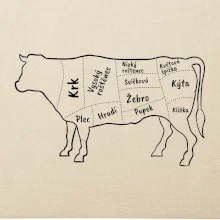 Krk
Vysoký
roštěnec
Nízký
roštěnec
Svíčková
Žebro
Pupek
Plec
Hrudí
Květová
špička
Kýta
Kližka